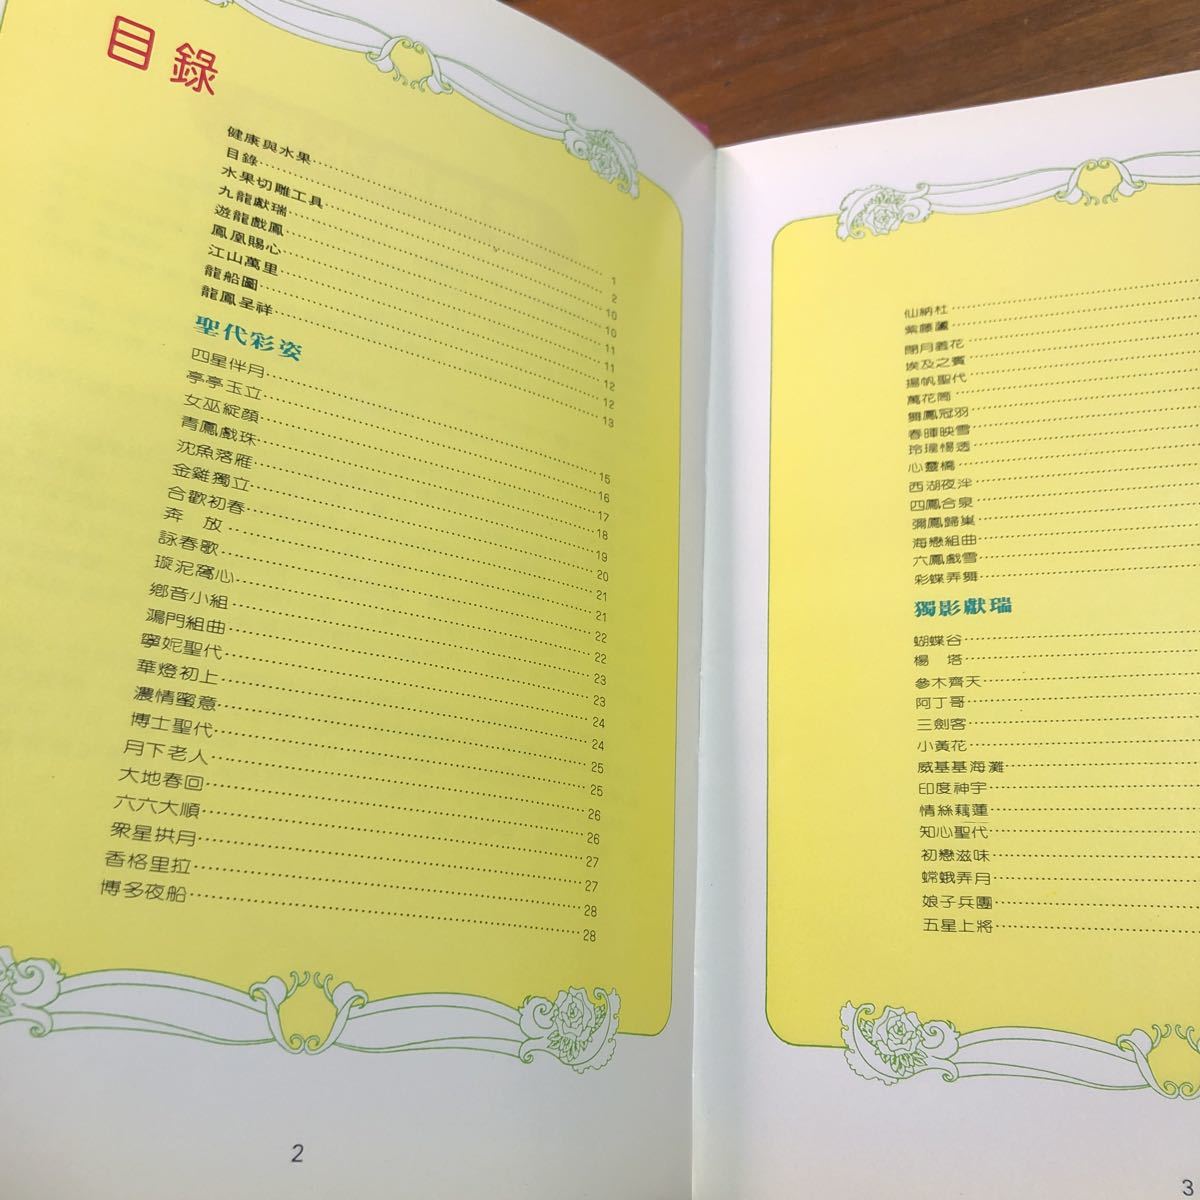 目錄
健康與水果 1
目錄 2
水果切雕工具 10
九龍獻瑞 10
遊龍戲鳳 11
鳳凰賜心 11
江山萬里 12
龍船圖 12
龍鳳呈祥 13
聖代彩姿
四星伴月 15
亭亭玉立 16
女巫綻顏 17
青鳳戲珠 18
沈魚落雁 19
金雞獨立 20
合歡初春 21
奔 放 21
詠春歌 22
璇泥窩心 22
鄉音小組 23
鴻門組曲 23
寧妮聖代 24
華燈初上 24
濃情蜜意 25
博士聖代 25
月下老人 26
大地春回 26
六六大順 27
眾星拱月 27
香格里拉 28
博多夜船 28
2
仙納杜
紫藤蘆
閉月羞花
埃及之賓
揚帆聖代
萬花筒
舞鳳冠羽
春暉映雪
玲瓏惕透
心靈橋
西湖夜泮
四鳳合泉
彌鳳歸巢
海戀組曲
六鳳戲雪
彩蝶弄舞
獨影獻瑞
蝴蝶谷
楊 塔
參木齊天
阿丁哥
三劍客
小黃花
威基基海灘
印度神宇
情絲藕蓮
知心聖代
初戀滋味
嫦娥弄月
娘子兵團
五星上將
3